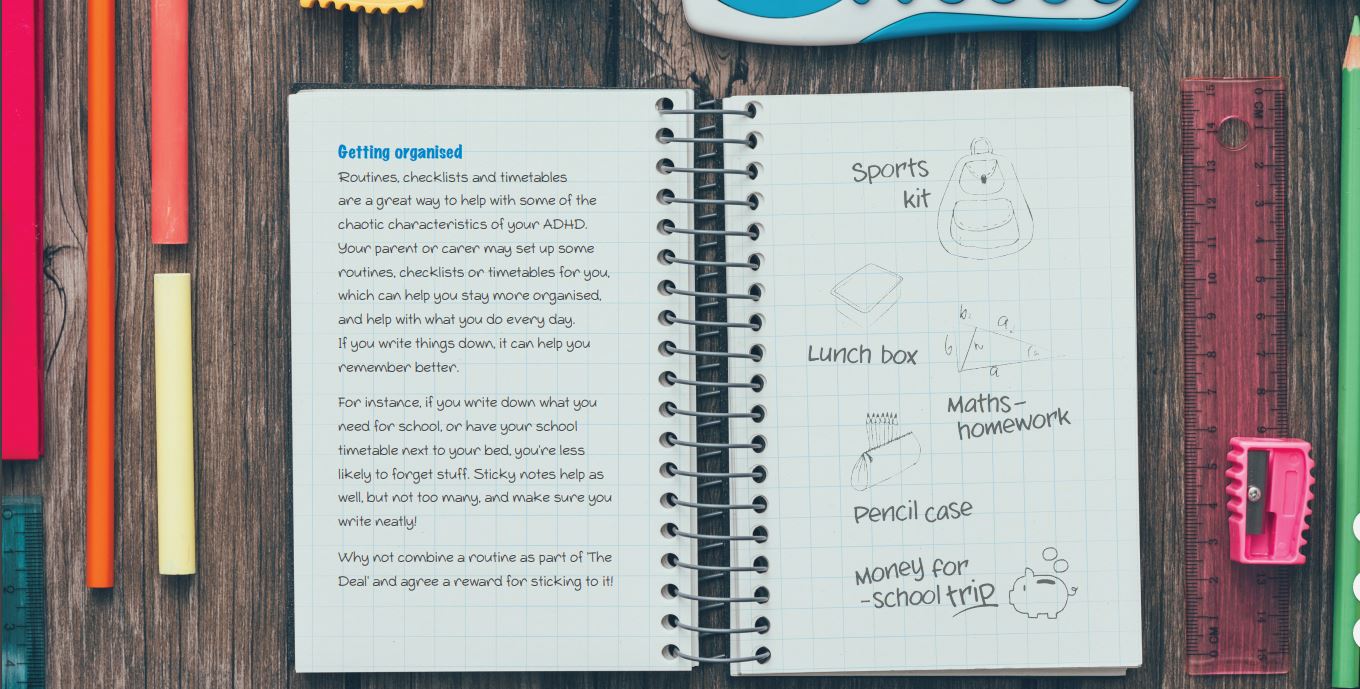 Getting organised
Routines, checklists and timetables
are a great way to help with some of the
chaotic characteristics of your ADHD.
Your parent or carer may set up some
routines, checklists or timetables for you,
which can help you stay more organised,
and help with what you do every day.
If you write things down, it can help you
remember better.
For instance, if you write down what you
need for school, or have your school
timetable next to your bed, you're less
likely to forget stuff. Sticky notes help as
well, but not too many, and make sure you
write neatly!
Why not combine a routine as part of 'The
Deal' and agree a reward for sticking to it!
Sports
kit
Lunch box
Maths-
homework
Pencil case
Money for
-school trip